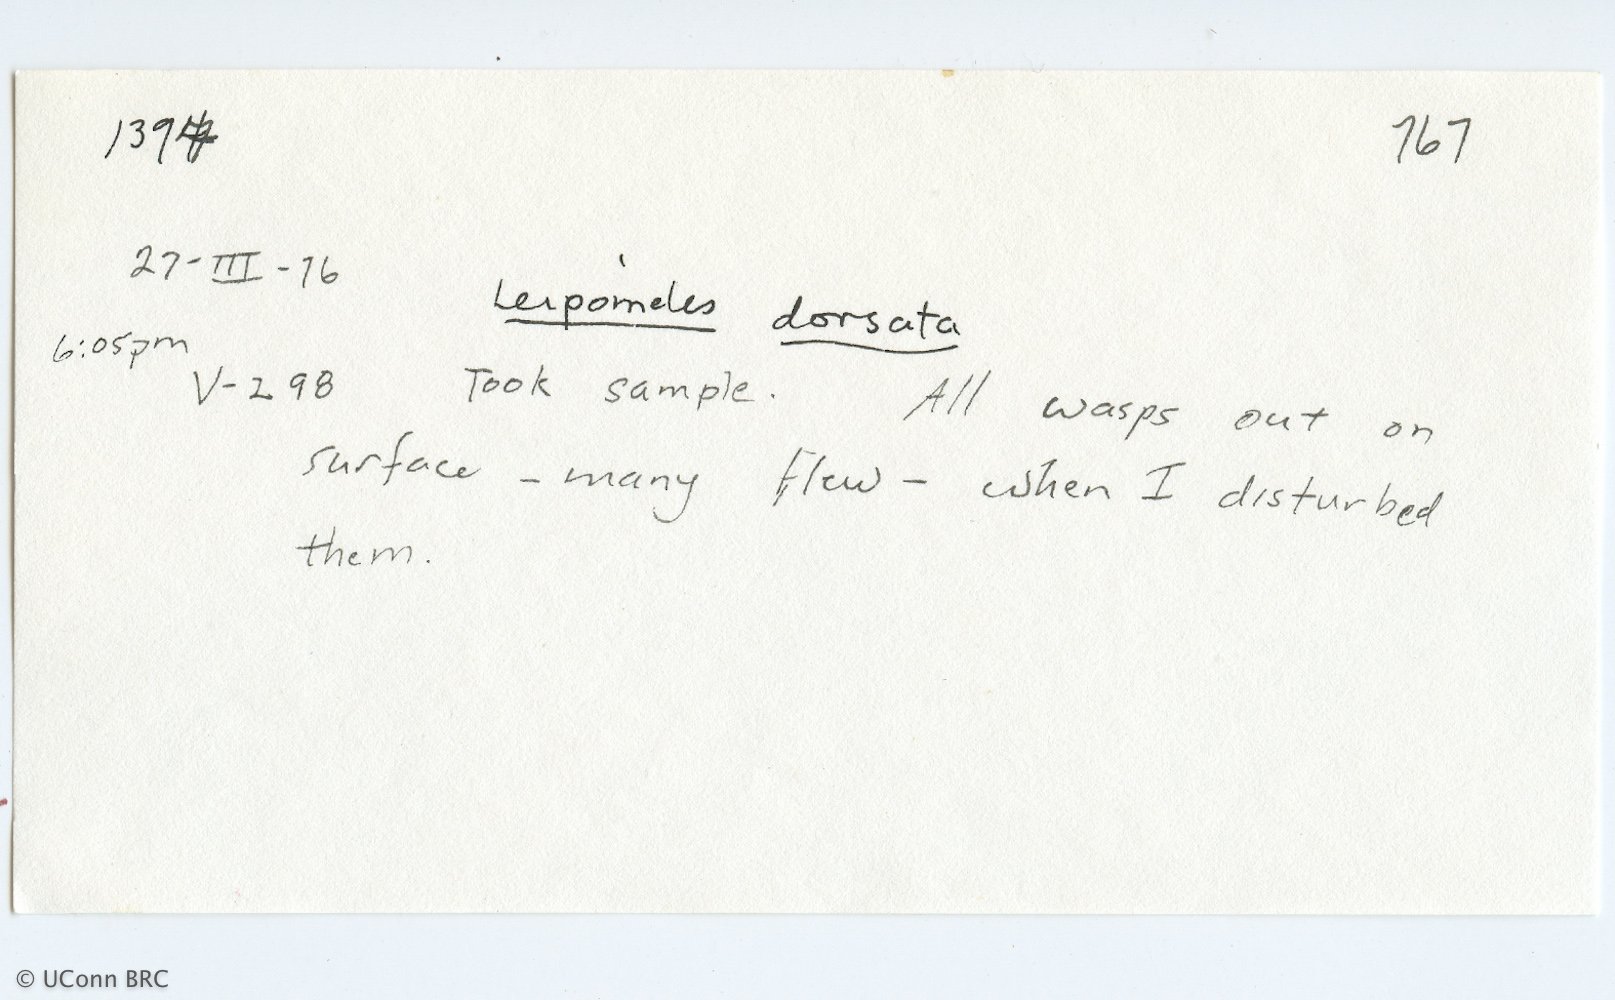 1394 767
27-III-76
Leipomeles dorsata
6:05pm
V-298 Took sample. All wasps out on
surface - many flew - when I disturbed
them.
© UConn BRC